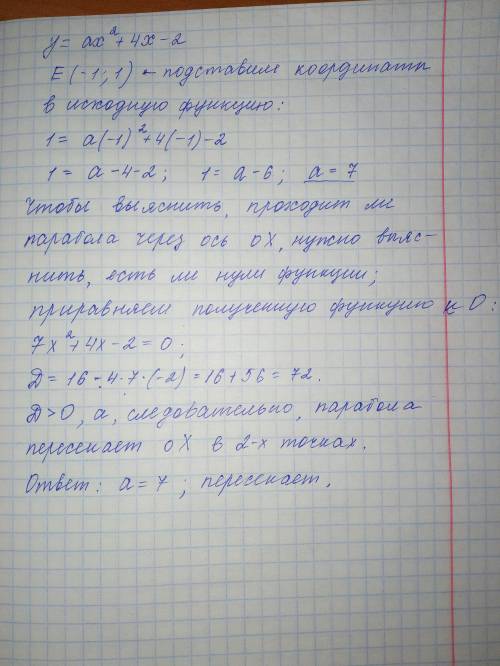 y = ax² + 4x - 2
E (-1; 1) ← подставим координаты
в исходную функцию:
1 = a(-1)² + 4(-1) - 2
1 = a - 4 - 2; 1 = a - 6; a = 7
Чтобы выяснить, проходит ли
парабола через ось OX, нужно выяс-
нить, есть ли нули функции;
приравняем полученную функцию к 0:
7x² + 4x - 2 = 0;
Д = 16 - 4·7·(-2) = 16 + 56 = 72.
Д > 0, а, следовательно, парабола
пересекает OX в 2-х точках.
Ответ: a = 7; пересекает.